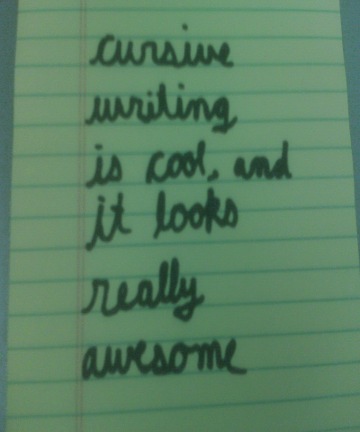 cursive
writing
is cool, and
it looks
really
awesome